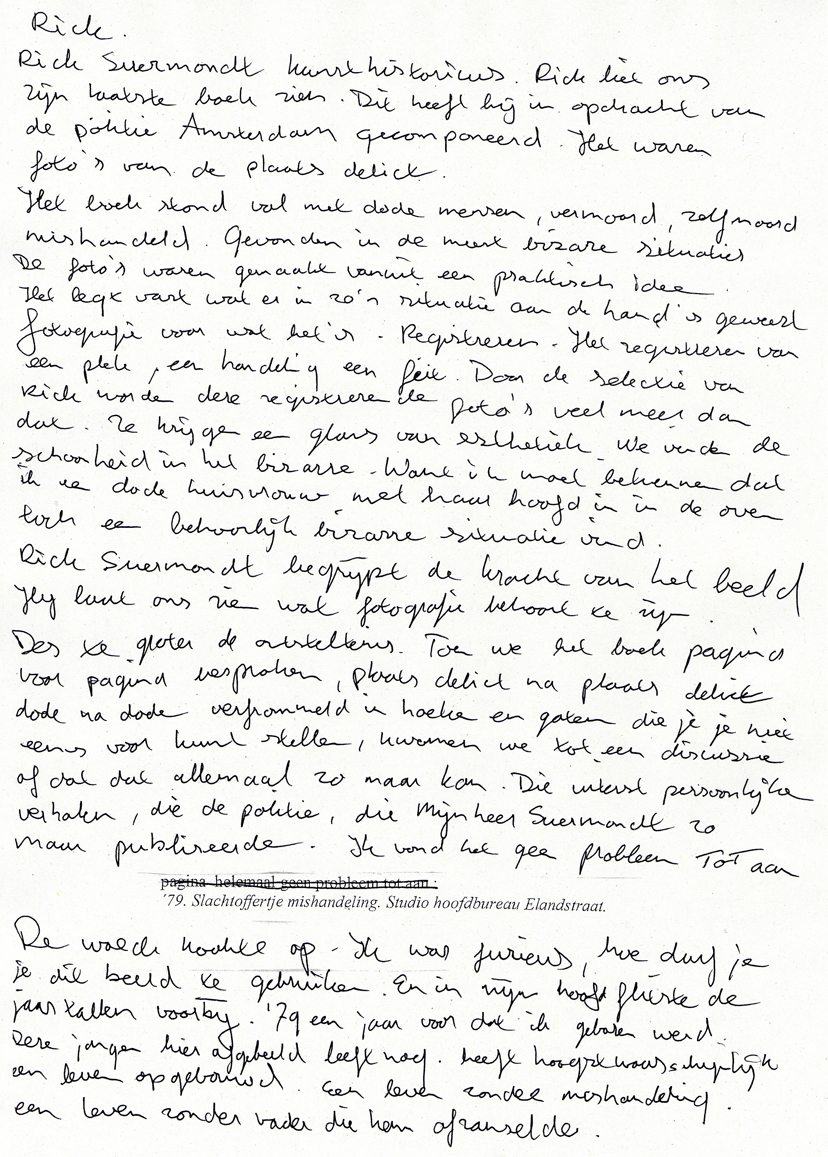 Rick.
Rick Suermondt kunsthistoricus. Rick liet ons
zijn laatste boek zien. Dit heeft hij in opdracht van
de politie Amsterdam gecomponeerd. Het waren
foto's van de plaats delict.
Het boek stond vol met dode mensen, vermoord, zelfmoord
mishandeld. Gevonden in de meest bizare situaties
De foto's waren gemaakt vanuit een praktisch idee.
Het legt vast wat er in zo'n situatie aan de hand is geweest
fotografie voor wat het is. Registreren. Het registreren van
een plek, een handeling een feit. Door de selectie van
Rick worden deze registrerende foto's veel meer dan
dat. Ze krijgen een glans van esthetiek. We vinden de
schoonheid in het bizarre. Want ik moet bekennen dat
ik een dode huisvrouw met haar hoofd in in de oven
toch een behoorlijk bizarre situatie vind.
Rick Suermondt begrijpt de kracht van het beeld
Hij laat ons zien wat fotografie behoort te zijn.
Des te groter de ontsteltenis. Toen we het boek pagina
voor pagina bespraken, plaats delict na plaats delict
dode na dode verfrommeld in hoeken en gaten die je je niet
eens voor kunt stellen, kwamen we tot een discussie
of dat dat allemaal zo maar kan. Die uiterst persoonlijke
verhalen, die de politie, die Mijnheer Suermondt zo
maar publiseerde. Ik vond het geen probleem TOT aan
pagina helemaal geen probleem tot aan :
'79. Slachtoffertje mishandeling. Studio hoofdbureau Elandstraat.
De woede kookte op. Ik was furieus, hoe durf je
je dit beeld te gebruiken. En in mijn hoofd flitste de
jaartallen voorbij. '79 een jaar voor dat ik geboren werd.
Deze jongen hier afgebeeld leeft nog. heeft hoogstwaarschijnlijk
een leven opgebouwd. Een leven zonder mishandeling.
een leven zonder vader die hem afranselde.